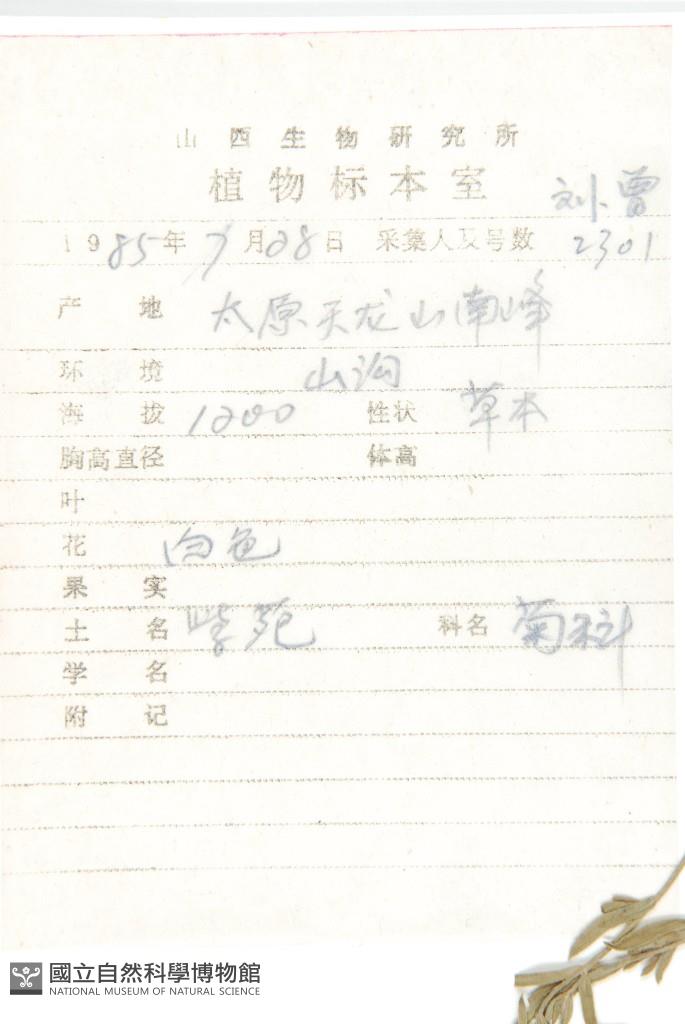 山西生物研究所
植物标本室
刘曾
1985年7月28日 采集人及号数 2301
产地 太原天龙山南峰
环境 山沟
海拔 1200 性状 草本
胸高直径 体高
叶
花 白色
果实
土名 紫菀 科名 菊科
学名
附记
國立自然科學博物館
NATIONAL MUSEUM OF NATURAL SCIENCE